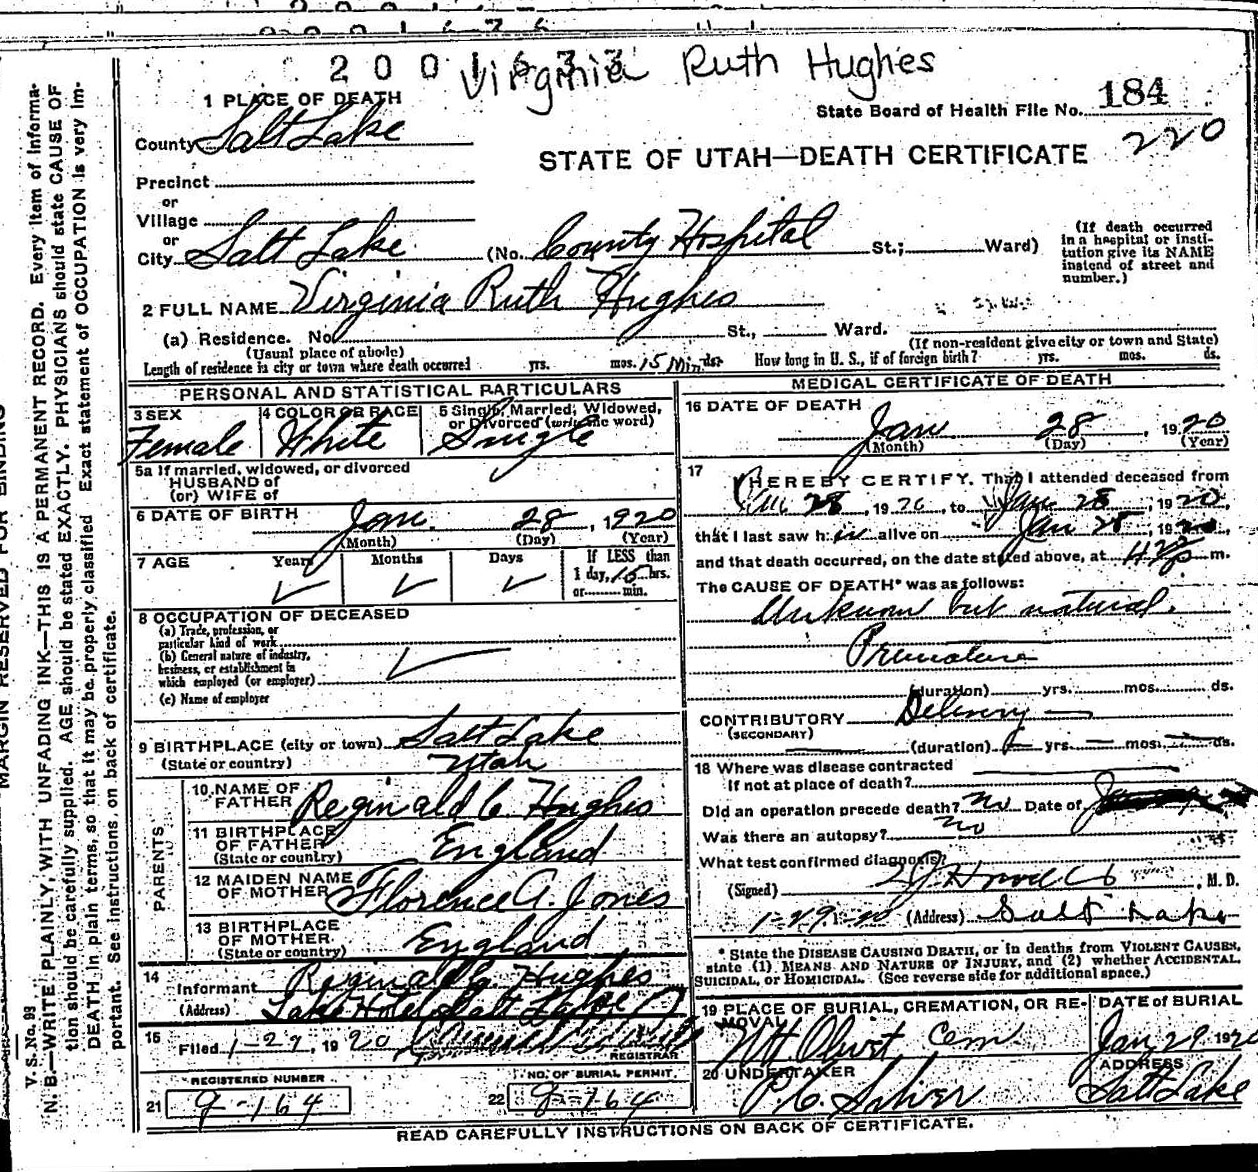 2001633
Virginia Ruth Hughes
1 PLACE OF DEATH
State Board of Health File No. 184
County Salt Lake
220
STATE OF UTAH—DEATH CERTIFICATE
Precinct
or
Village
or
City Salt Lake (No. County Hospital St.; Ward)
(If death occurred in a hospital or insti-
tution give its NAME
instead of street and
number.)
2 FULL NAME Virginia Ruth Hughes
(a) Residence. No. St., Ward.
(Usual place of abode)
(If non-resident give city or town and State)
Length of residence in city or town where death occurred yrs. mos. 15 Min. ds. How long in U. S., if of foreign birth? yrs. mos. ds.
PERSONAL AND STATISTICAL PARTICULARS
3 SEX
Female
4 COLOR OR RACE
White
5 Single, Married, Widowed,
or Divorced (write the word)
Single
5a If married, widowed, or divorced
HUSBAND of
(or) WIFE of
6 DATE OF BIRTH Jan. 28, 1920
(Month) (Day) (Year)
7 AGE Years Months Days
If LESS than
1 day, 15 hrs.
or min.
8 OCCUPATION OF DECEASED
(a) Trade, profession, or
particular kind of work
(b) General nature of industry,
business, or establishment in
which employed (or employer)
(c) Name of employer
9 BIRTHPLACE (city or town) Salt Lake
(State or country) Utah
PARENTS
10 NAME OF
FATHER Reginald C Hughes
11 BIRTHPLACE
OF FATHER England
(State or country)
12 MAIDEN NAME
OF MOTHER Florence A. Jones
13 BIRTHPLACE
OF MOTHER England
(State or country)
14
Informant Reginald C. Hughes
(Address) Lake Hotel Salt Lake
15
Filed 1-29, 1920
REGISTRAR
REGISTERED NUMBER
21 9-164
NO. OF BURIAL PERMIT
22 9-164
MEDICAL CERTIFICATE OF DEATH
16 DATE OF DEATH
Jan 28, 1920
(Month) (Day) (Year)
17
I HEREBY CERTIFY, That I attended deceased from
Jan 28, 1920, to Jan 28, 1920,
that I last saw h alive on Jan 28, 1920,
and that death occurred, on the date stated above, at m.
The CAUSE OF DEATH* was as follows:
Unknown but natural.
Premature
(duration) yrs. mos. ds.
CONTRIBUTORY Delivery
(SECONDARY)
(duration) yrs. mos. ds.
18 Where was disease contracted
If not at place of death?
Did an operation precede death? no Date of
Was there an autopsy? no
What test confirmed diagnosis?
(Signed) , M. D.
1-29 1920 (Address) Salt Lake
* State the DISEASE CAUSING DEATH, or in deaths from VIOLENT CAUSES,
state (1) MEANS AND NATURE OF INJURY, and (2) whether ACCIDENTAL,
SUICIDAL, or HOMICIDAL. (See reverse side for additional space.)
19 PLACE OF BURIAL, CREMATION, OR RE-
MOVAL
Mt Olivet Cem
DATE OF BURIAL
Jan 29 1920
20 UNDERTAKER
ADDRESS
Salt Lake
READ CAREFULLY INSTRUCTIONS ON BACK OF CERTIFICATE.
MARGIN RESERVED FOR BINDING
V. S. No. 93
N. B.—WRITE PLAINLY, WITH UNFADING INK—THIS IS A PERMANENT RECORD. Every item of informa-
tion should be carefully supplied. AGE should be stated EXACTLY. PHYSICIANS should state CAUSE OF
DEATH in plain terms, so that it may be properly classified. Exact statement of OCCUPATION is very im-
portant. See instructions on back of certificate.